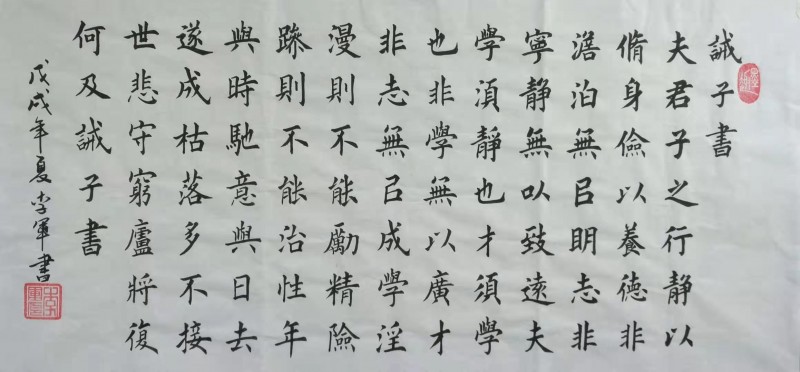 誡子書
夫君子之行静以
脩身儉以養德非
澹泊無㠯明志非
寧静無以致遠夫
學須静也才須學
也非學無以廣才
非志無㠯成學淫
漫則不能勵精險
躁則不能治性年
與時馳意與日去
遂成枯落多不接
世悲守窮廬將復
何及誡子書
戊戌年夏李軍書